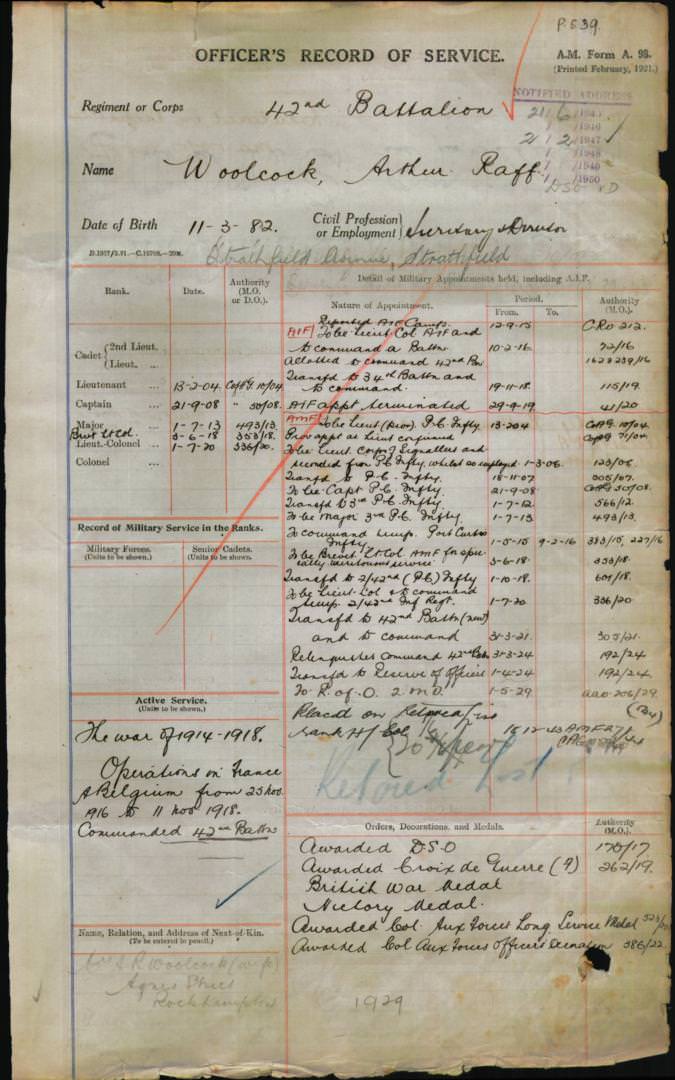 P539.
OFFICER'S RECORD OF SERVICE.
A.M. Form A. 98.
(Printed February, 1921.)
NOTIFIED ADDRESS
Regiment or Corps 42nd Battalion
21 6 /1945
/1946
2 2 /1947
/1948
/1949
/1950
Name Woolcock, Arthur Raff.
DSO VD
Date of Birth 11-3-82. Civil Profession or Employment} Secretary & Director
D.1917/3.21.—C.16798.—20M.
Strathfield Avenue, Strathfield
Rank. Date. Authority (M.O. or D.O.).
2nd Lieut.
Cadet
Lieut. ...
Lieutenant ... 13-2-04. C of A G 10/04.
Captain ... 21-9-08 " 50/08.
Major ... 1-7-13 493/13.
Brevt Lt Col. 3-6-18 353/18.
Lieut.-Colonel ... 1-7-20 336/20.
Colonel ...
Record of Military Service in the Ranks.
Military Forces. (Units to be shown.)
Senior Cadets. (Units to be shown.)
Active Service.
(Units to be shown.)
The war of 1914-1918.
Operations in France
& Belgium from 25 Nov
1916 to 11 Nov 1918.
Commanded 42nd Battn
Name, Relation, and Address of Next-of-Kin.
(To be entered in pencil.)
A R Woolcock (wife)
Agnes Street
Rockhampton
Detail of Military Appointments held, including A.I.F.
Nature of Appointment. Period. Authority (M.O.).
From. To.
Reported AIF Camp. 12-9-15 CRO 212.
AIF To be Lieut Col AIF and
to command a Battn 10-2-16 72/16
Allotted to command 42nd Bn 162 & 239/16
Transfd to 34th Battn and
to command. 19-11-18 115/19.
AIF appt terminated 29-9-19 41/20
AMF To be Lieut (prov) P.C. Infty. 13-2-04 C of A G 10/04.
Prov appt as Lieut confirmed C of A G 71/04.
To be Lieut Corps of Signallers and
seconded from P.C. Infty, whilst so employed. 1-3-06. 123/06.
Transfd to P.C. Infty. 18-11-07 305/07.
To be Capt P.C. Infty. 21-9-08 C of A G 50/08.
Transfd to 3rd P.C. Infty 1-7-12 566/12.
To be Major 3rd P.C. Infty 1-7-13 493/13.
To command temp. Port Curtis
Infty 1-5-15 9-2-16 383/15, 227/16
To be Brevet Lt Col AMF for specially
meritorious service 3-6-18 353/18.
Transfd to 2/42nd (P.C.) Infty 1-10-18 601/18.
To be Lieut Col & to command
temp 2/42nd Inf Regt. 1-7-20 336/20
Transfd to 42nd Battn (new)
and to command 31-3-21. 305/21.
Relinquishes command 42nd Bn 31-3-24 192/24
Transfd to Reserve of Officers 1-4-24 192/24
To R. of O. 2 M.D. 1-5-29 AAO 206/29
Placed on Retired List
Retired List
Orders, Decorations, and Medals. Authority (M.O.).
Awarded DSO 170/17
Awarded Croix de Guerre (F) 262/19.
British War Medal
Victory Medal.
Awarded Col. Aux Forces Long Service Medal
Awarded Col Aux Forces Officers Decoration 386/22.
1929